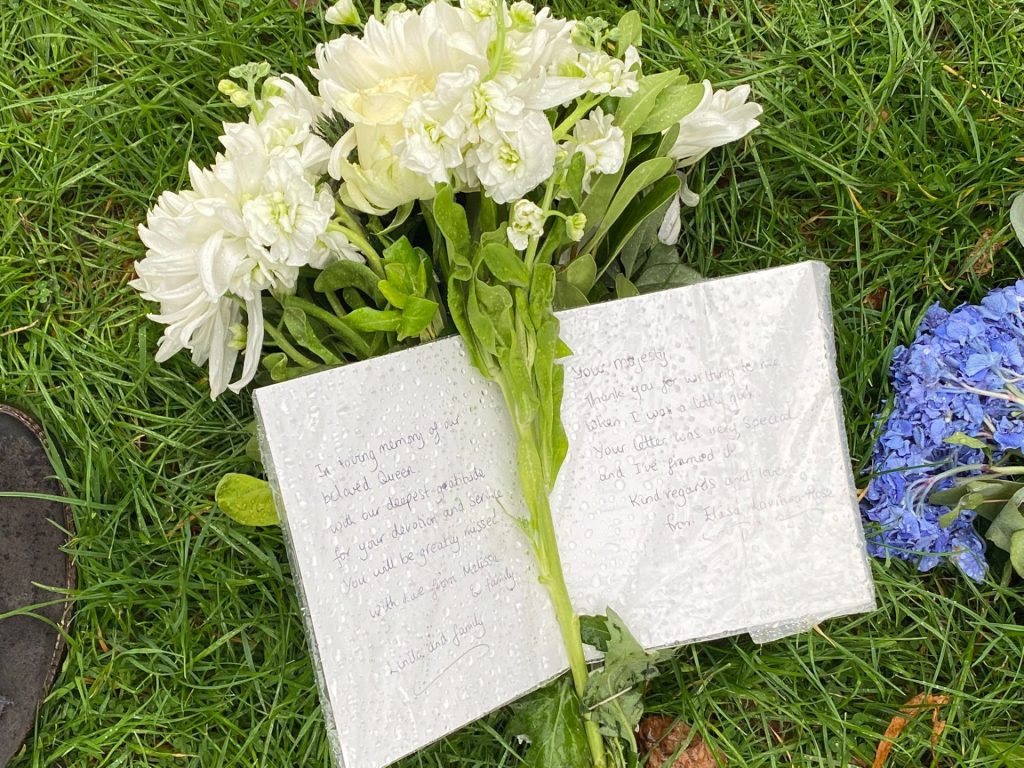 In loving memory of our
beloved Queen
with our deepest gratitude
for your devotion and service
You will be greatly missed
with love from Melissa
& family
Linda and family
Your Majesty
Thank you for writing to me
when I was a little girl
Your letter was very special
and I've framed it
Kind regards and love
from Elisa Rose